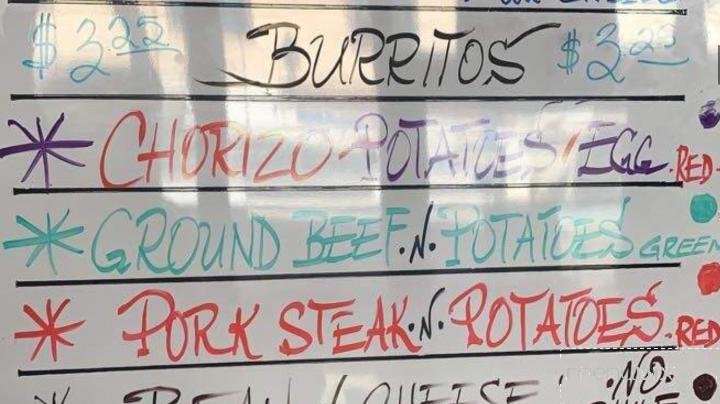 $3.25 BURRITOS $3.25
* CHORIZO-POTATOES/EGG.RED
* GROUND BEEF.N.POTATOES GREEN
* PORK STEAK.N.POTATOES.RED
* BEAN / CHEESE . NO.
menupix